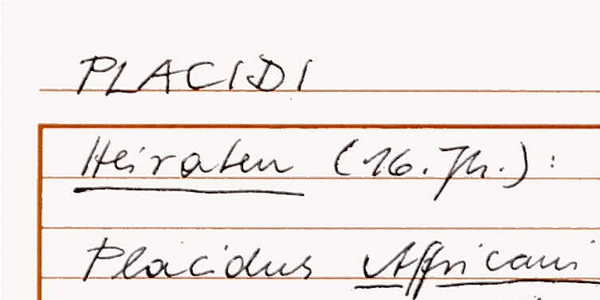 PLACIDI
Heiraten (16. Jh.):
Placidus Africani